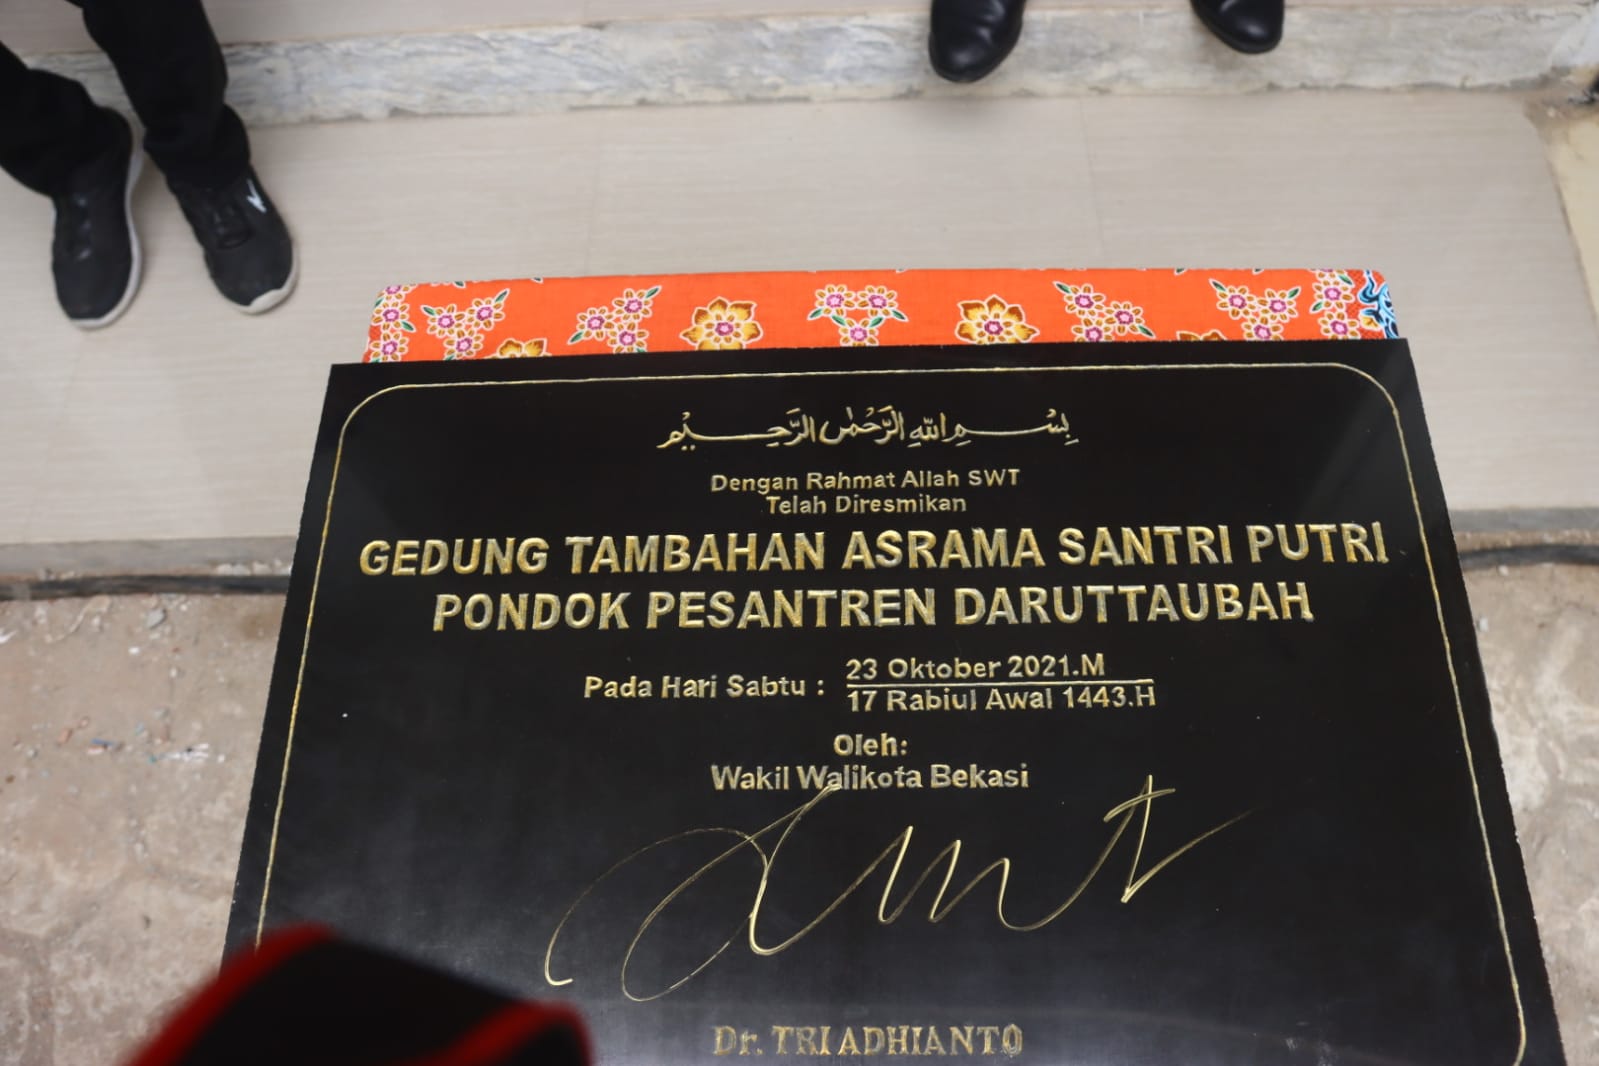 بِسْمِ اللّٰهِ الرَّحْمٰنِ الرَّحِيْمِ
Dengan Rahmat Allah SWT
Telah Diresmikan
GEDUNG TAMBAHAN ASRAMA SANTRI PUTRI
PONDOK PESANTREN DARUTTAUBAH
Pada Hari Sabtu : 23 Oktober 2021.M
17 Rabiul Awal 1443.H
Oleh:
Wakil Walikota Bekasi
Dr. TRI ADHIANTO